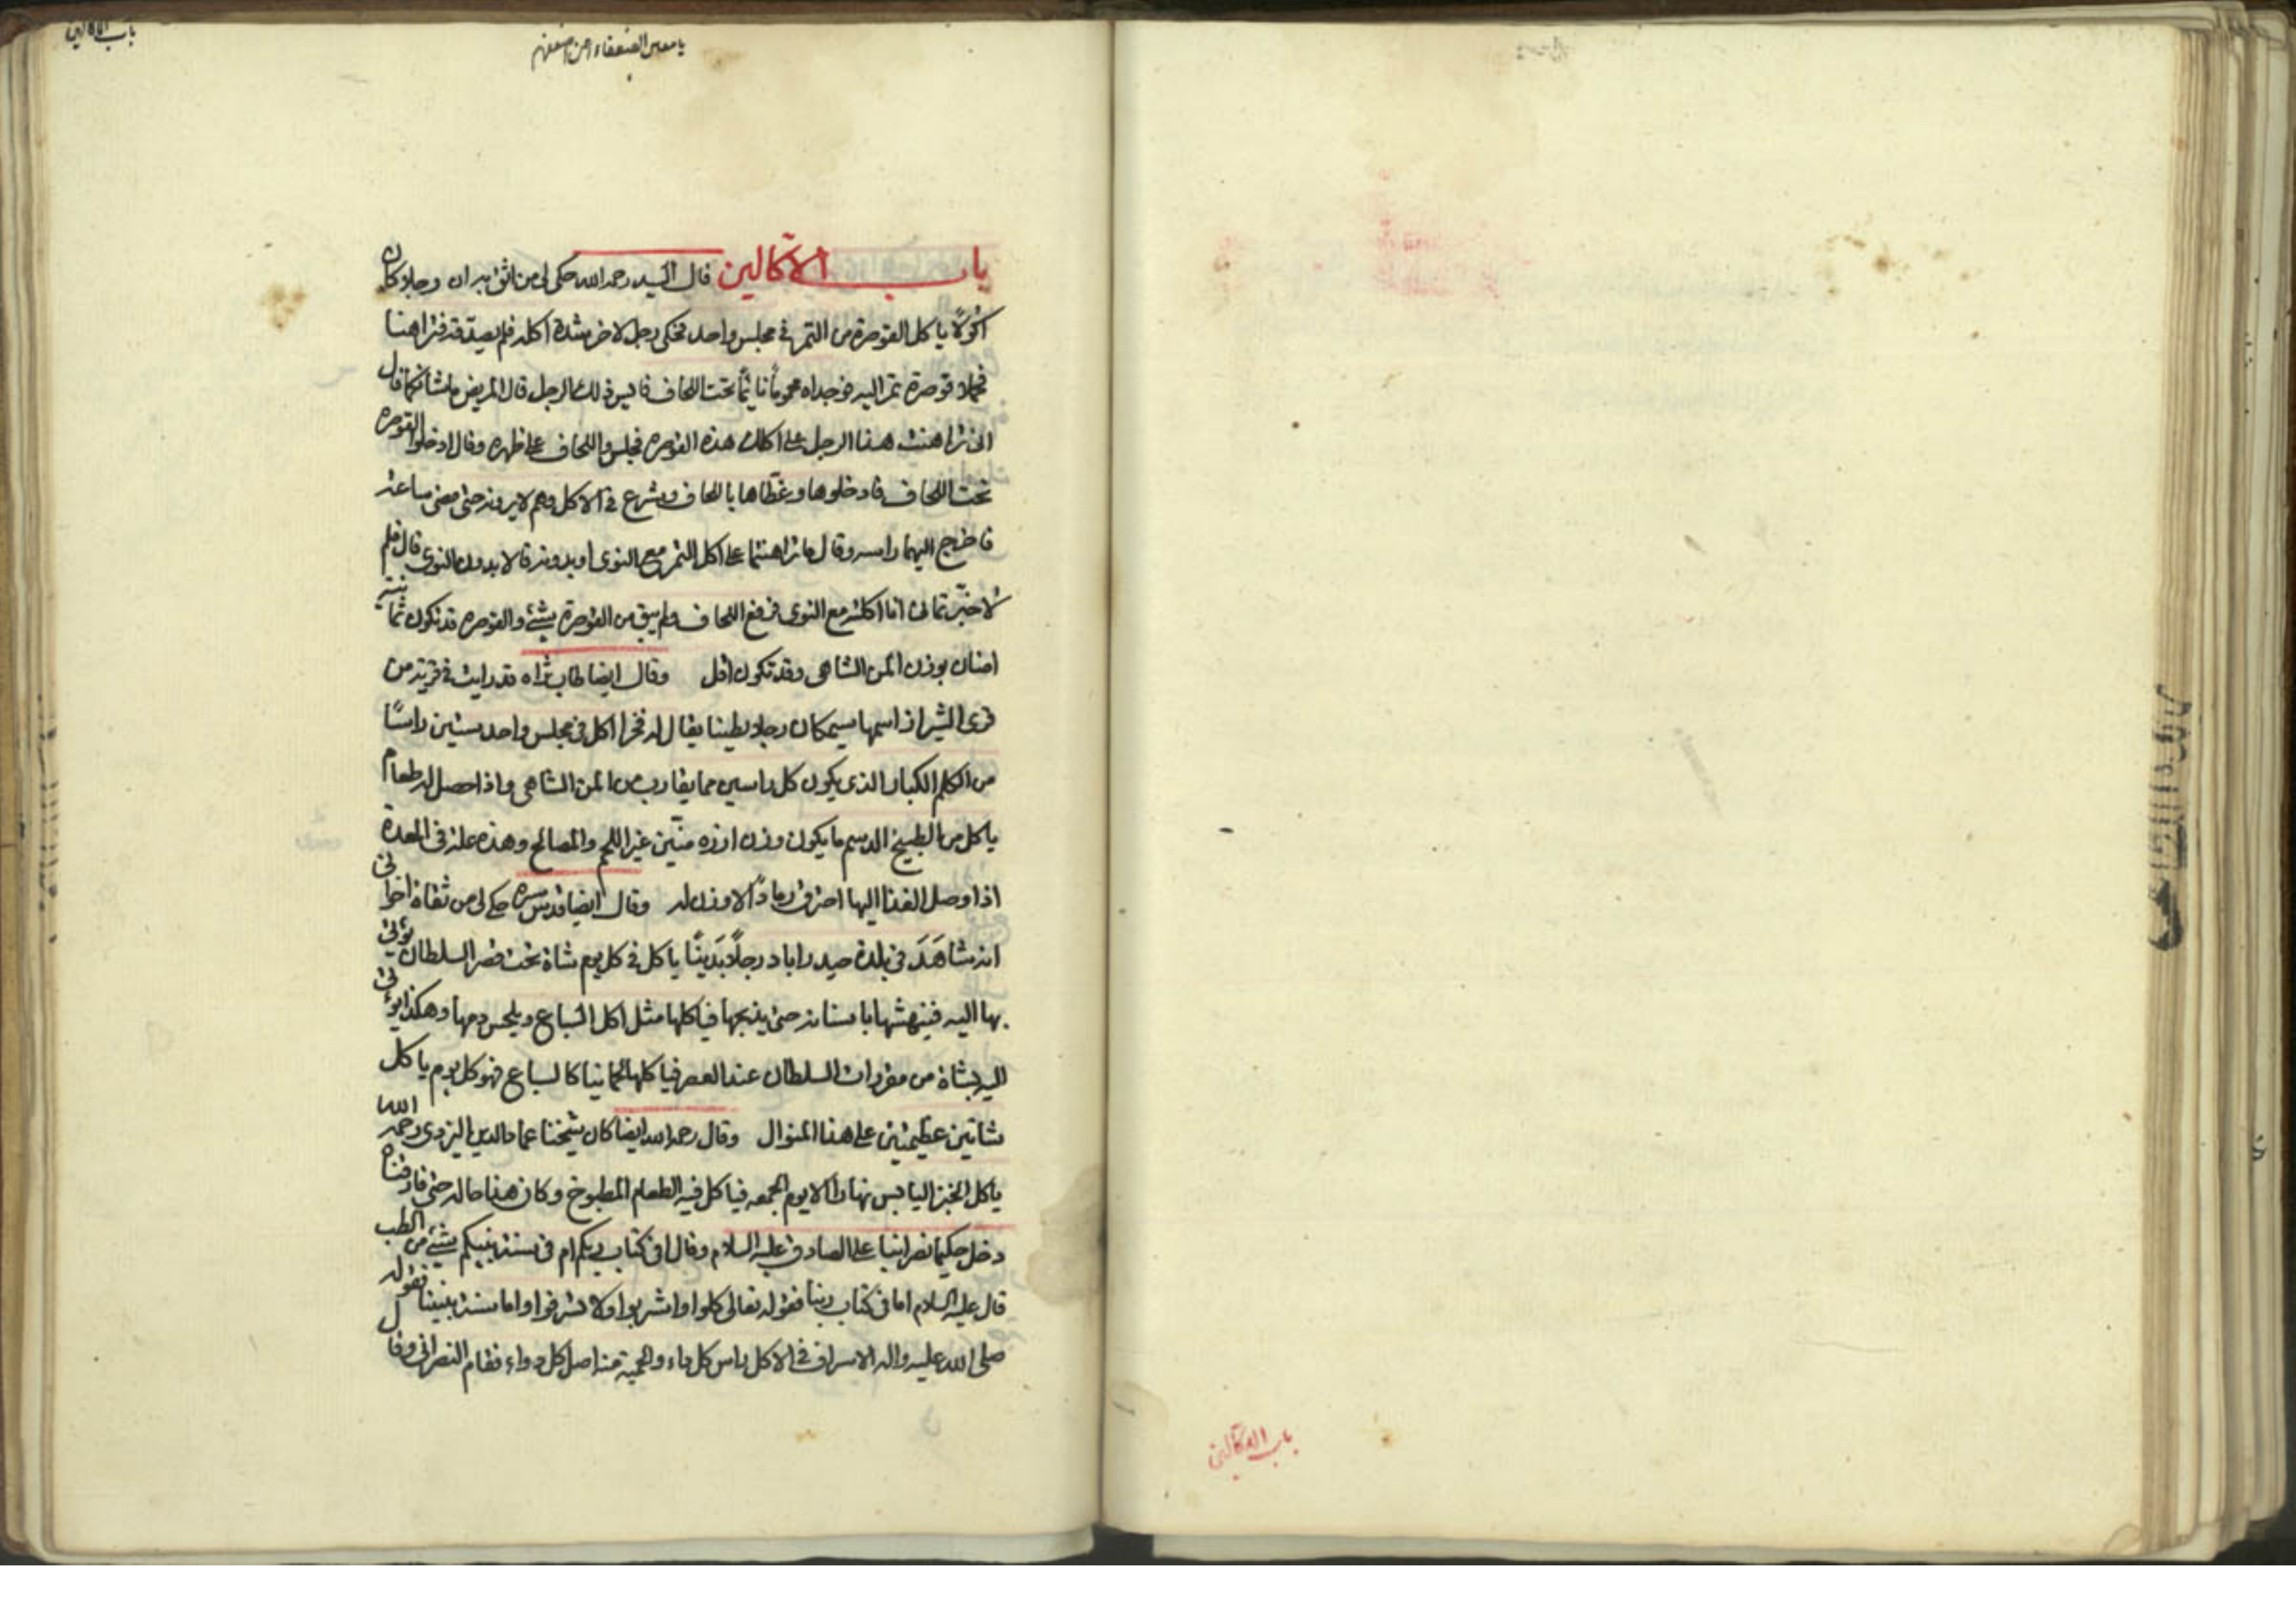 باب الاكالين
يا معين الضعفاء
باب الاكّالين قال السيد رحمه الله حكى لي من اثق به ان رجلا كان
اكولًا ياكل القوصرة من التمر في مجلس واحد فحكى رجل لاخر شدة اكله فلم يصدقه فتراهنا
فحملا قوصرة تمر اليه فوجداه محموماً نائماً تحت اللحاف ذلك الرجل قال المريض ما شانكما قال
اني تراهنت هذا الرجل على اكلك هذه القوصره فجلس واللحاف على ظهره وقال ادخلوا القوصره
تحت اللحاف فادخلوها وغطاها باللحاف وشرع في الاكل وهم لا يرونه حتى مضى ساعة
فاخرج اليهما راسه وقال ما تراهنتما على اكل التمر مع النوى او بدونه قالا بدون النوى قال فلم
لا خبرتماني انا اكلته مع النوى فرفع اللحاف ولم يبق من القوصرة شيء والقوصره قد تكون ثمانية
امنان بوزن المن الشاهى وقد تكون اقل وقال ايضا طاب ثراه قد رايت في قرية من
قرى الشيراز اسمها كان رجلا بطينا يقال له فخرا اكل في مجلس واحد ستين راسًا
من الكلم الكبار الذي يكون كل راسين مما يقارب من المن الشاهى واذا حصل له طعام
ياكل من الطبيخ الدسم ما يكون وزن ارزه منّين غير اللحم والمصالح وهذه علة في المعدة
اذا وصل الغذا اليها احترق رمادًا لا وزن له وقال ايضا قدس سره حكى لي من ثقاة اخواني
انه شاهَدَ في بلدة حيدراباد رجلًا بَدَينًا ياكل في كل يوم شاة تحت قصر السلطان يؤتى
بها اليه فينهشها باسنانه حتى يذبحها فياكلها مثل اكل السباع ويلحس دمها وهكذا يؤتى
اليه بشاة من مقررات السلطان عند العصر فياكلها كالسباع فهو كل يوم ياكل
شاتين عظيمتين على هذا المنوال وقال رحمه الله ايضا كان شيخنا عماد الدين اليزدى رحمه الله
ياكل الخبز اليابس نهارا الا يوم الجمعه فياكل فيه الطعام المطبوخ وكان هذا حاله حتى فارقناه
دخل حكيما نصرانيا على الصادق عليه السلام وقال افى كتاب ربكم ام فى سنة نبيكم شيء من الطب
قال عليه السلام اما في كتاب ربنا فقوله تعالى كلوا واشربوا ولا تسرفوا واما سنة نبينا فقوله
صلى الله عليه واله الاسراف في الاكل راس كل داء والحمية منه اصل كل دواء فقام النصراني وقال
باب الاكّالين